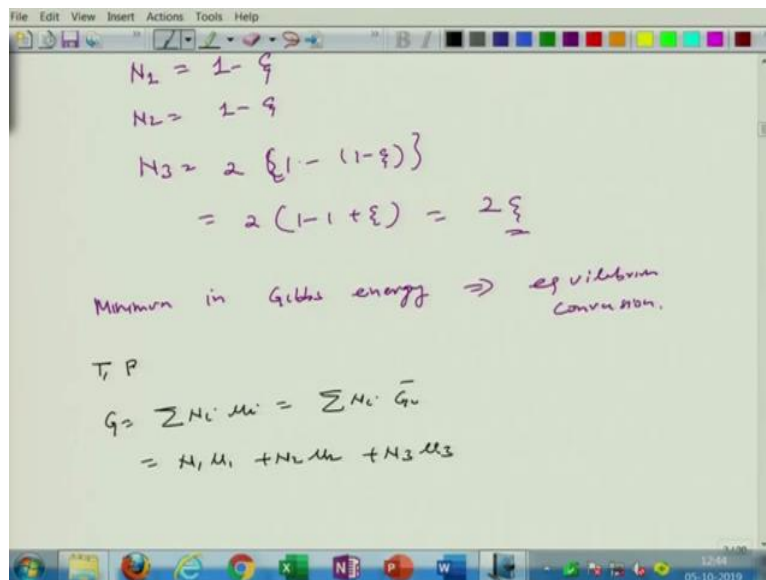 File Edit View Insert Actions Tools Help
N1 = 1 - ξ
N2 = 1 - ξ
N3 = 2 {1 - (1-ξ)}
= 2 (1-1+ξ) = 2ξ
Minimum in Gibbs energy ⇒ equilibrium
conversion.
T, P
G = ΣNi μi = ΣNi Ḡi
= N1 μ1 + N2 μ2 + N3 μ3
12:44
05-10-2019